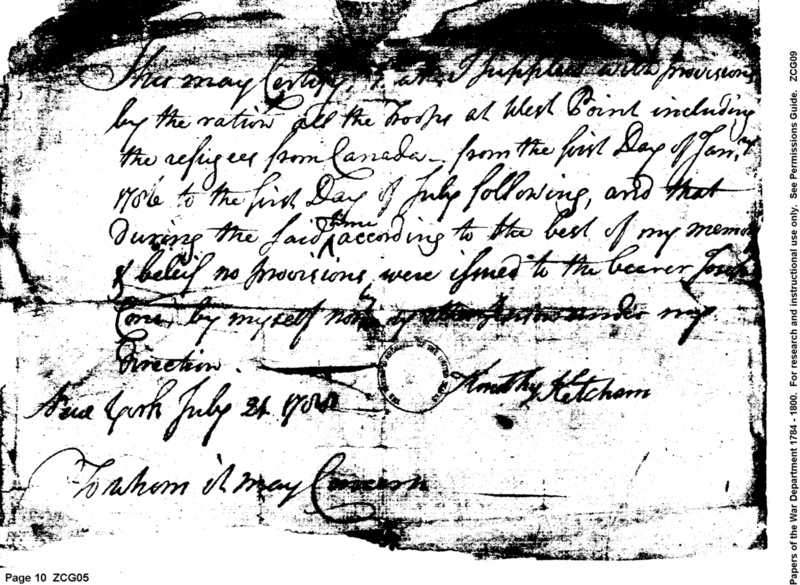 This may Certify that I supplied with provisions
by the ration all the Troops at West Point including
the refigees from Canada - from the first Day of Jany
1786 to the first Day of July following, and that
During the said time according to the best of my memory
& beleif no provisions were issued to the bearer Joseph
by myself nor by under my
Direction.
New York July 21
Timothy Ketcham
To whom it may Concern
Page 10 ZCG05
Papers of the War Department 1784 - 1800. For research and instructional use only. See Permissions Guide. ZCG09